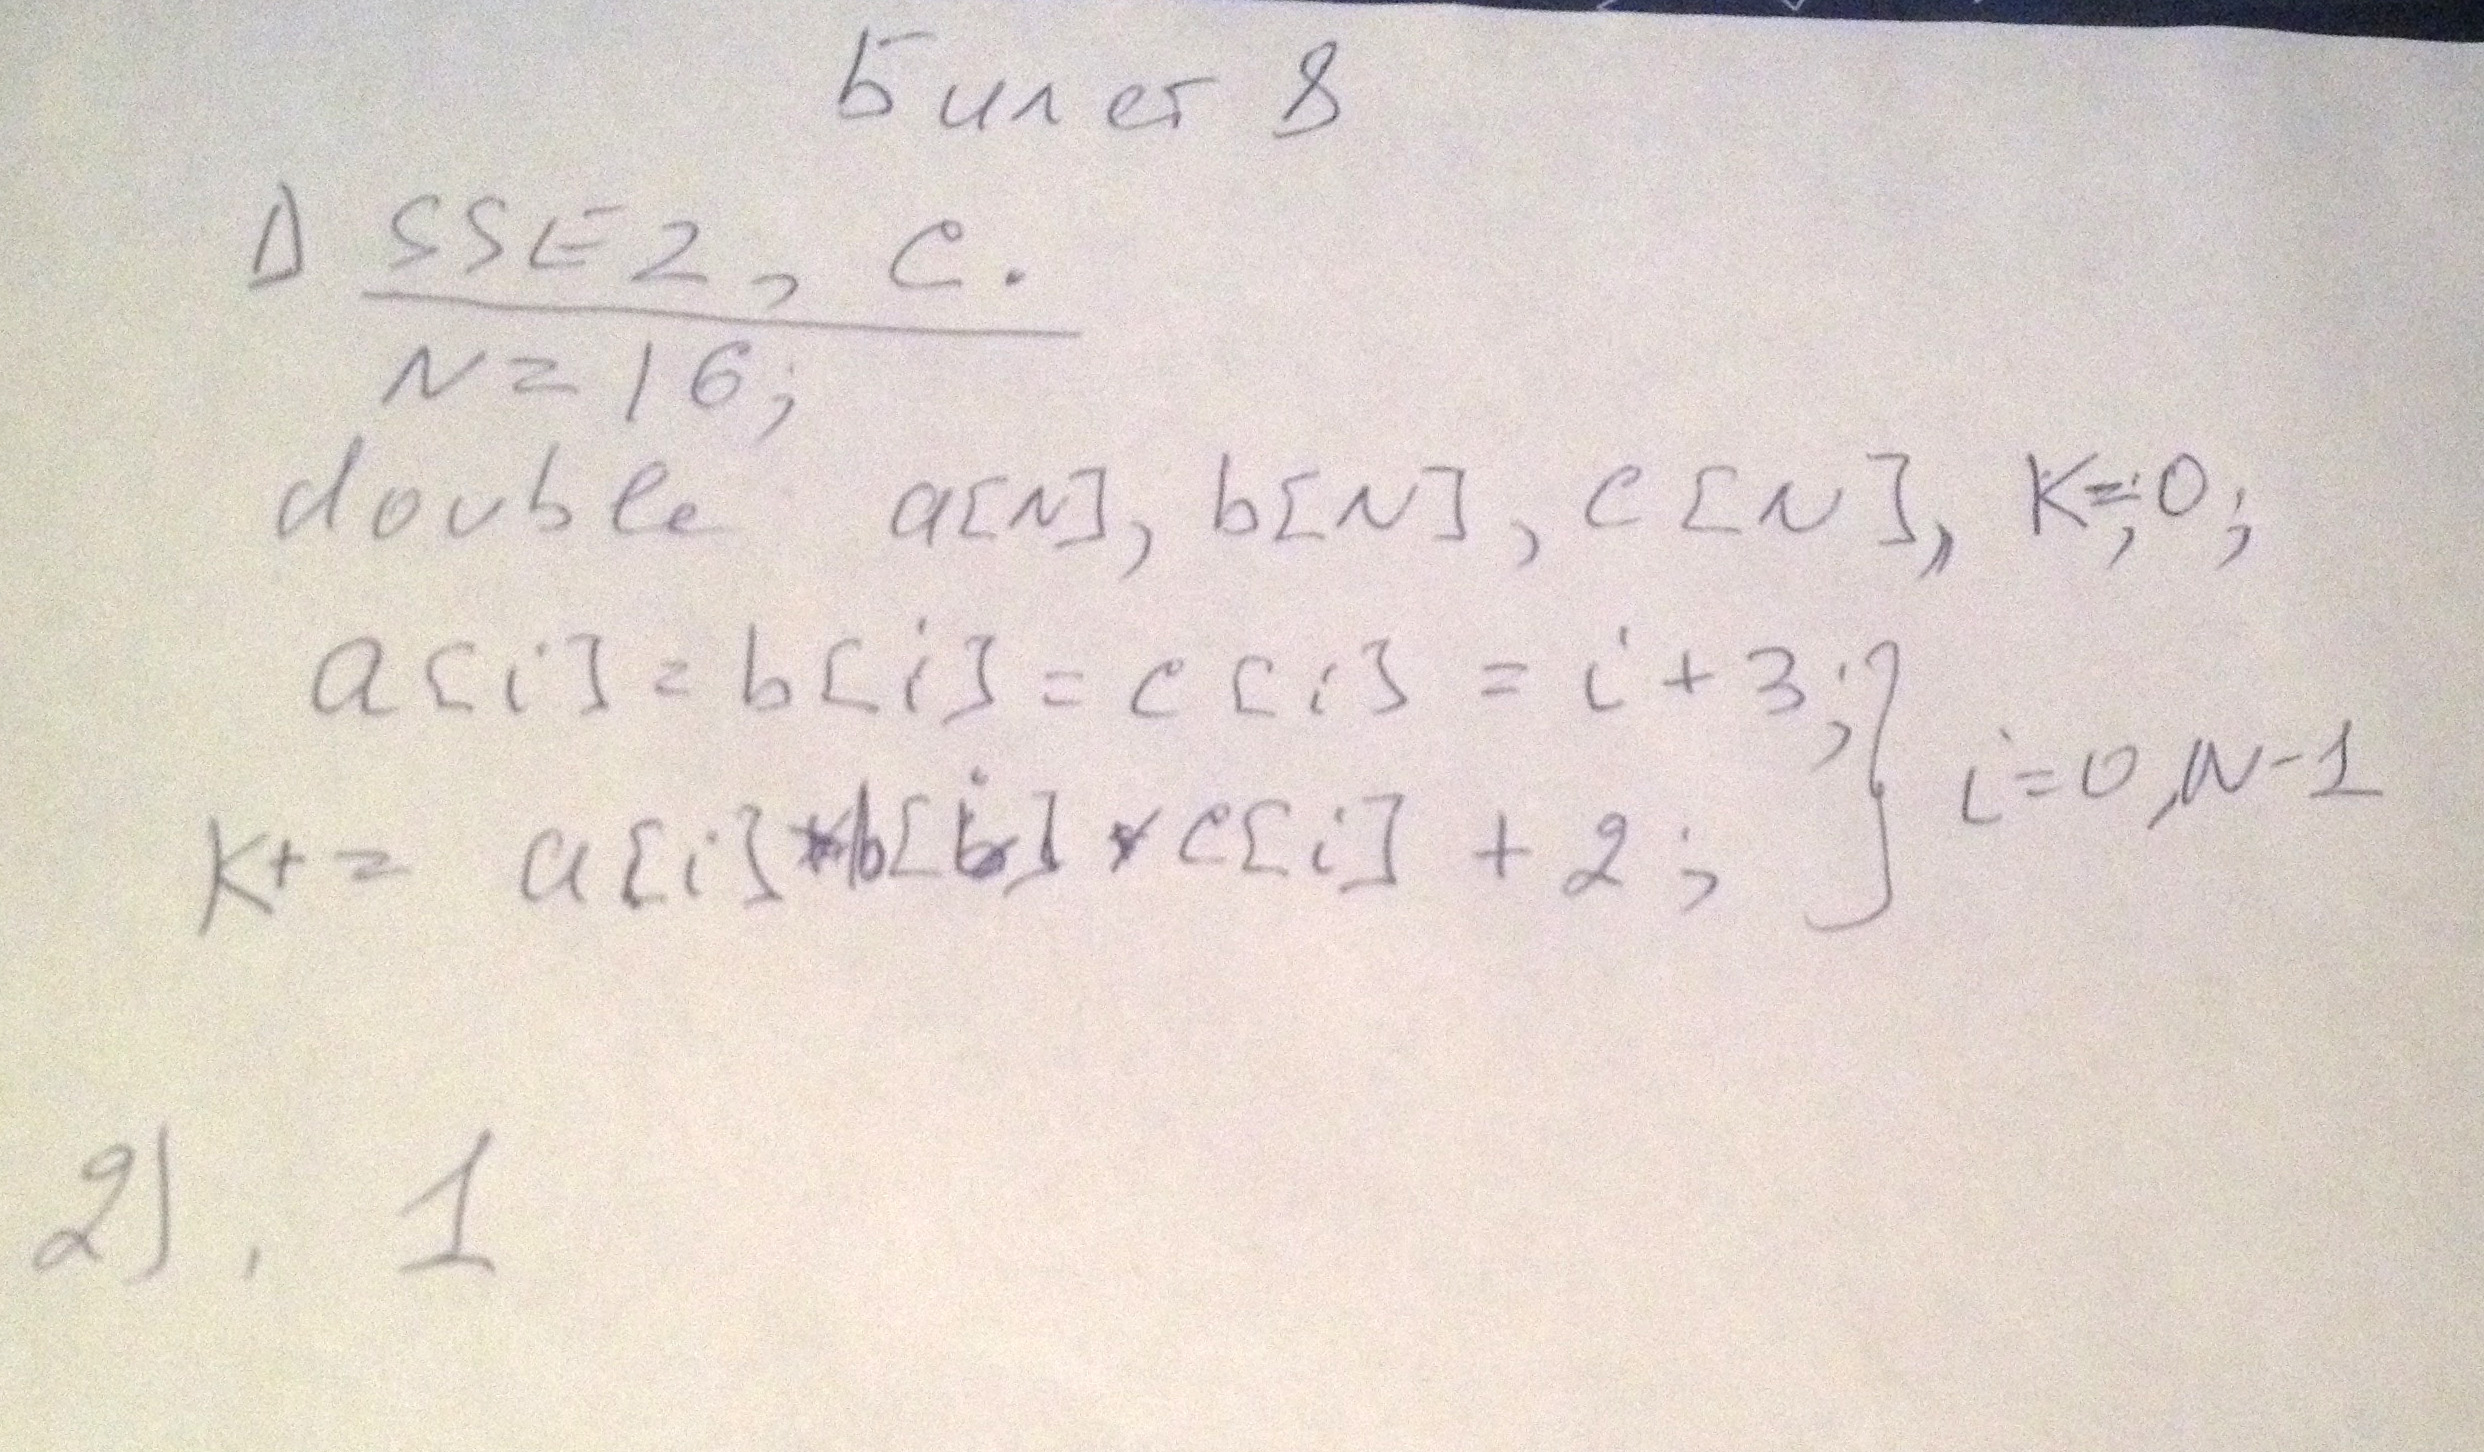 Билет 8
1) SSE2, C.
N=16;
double a[N], b[N], c[N], K=0;
a[i]=b[i]=c[i]=i+3;
i=0,N-1
K+= a[i]*b[i]*c[i]+2;
2). 1